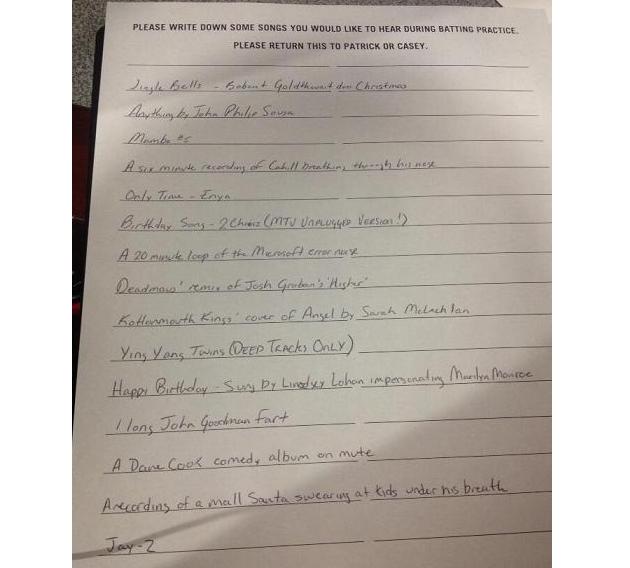 PLEASE WRITE DOWN SOME SONGS YOU WOULD LIKE TO HEAR DURING BATTING PRACTICE.
PLEASE RETURN THIS TO PATRICK OR CASEY.
Jingle Bells - Bobcat Goldthwait does Christmas
Anything by John Philip Sousa
Mambo #5
A six minute recording of Cahill breathing through his nose
Only Time - Enya
Birthday Song - 2 Chainz (MTV UNPLUGGED VERSION!)
A 20 minute loop of the Microsoft error noise
Deadmaus' remix of Josh Groban's 'Higher'
Kottonmouth Kings' cover of Angel by Sarah McLachlan
Ying Yang Twins (DEEP TRACKS ONLY)
Happy Birthday - Sung by Lindsey Lohan impersonating Marilyn Monroe
1 long John Goodman fart
A Dane Cook comedy album on mute
A recording of a mall Santa swearing at kids under his breath
Jay-Z